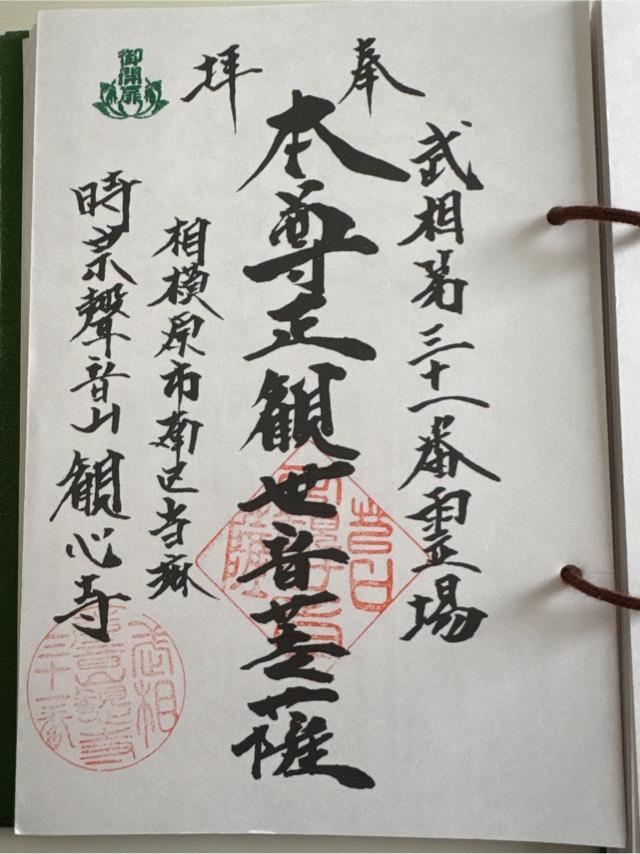 奉拝
武相第三十一番霊場
本尊正観世音菩薩
相模原市南区当麻
時宗聲音山観心寺
御開扉
武相
三十一番